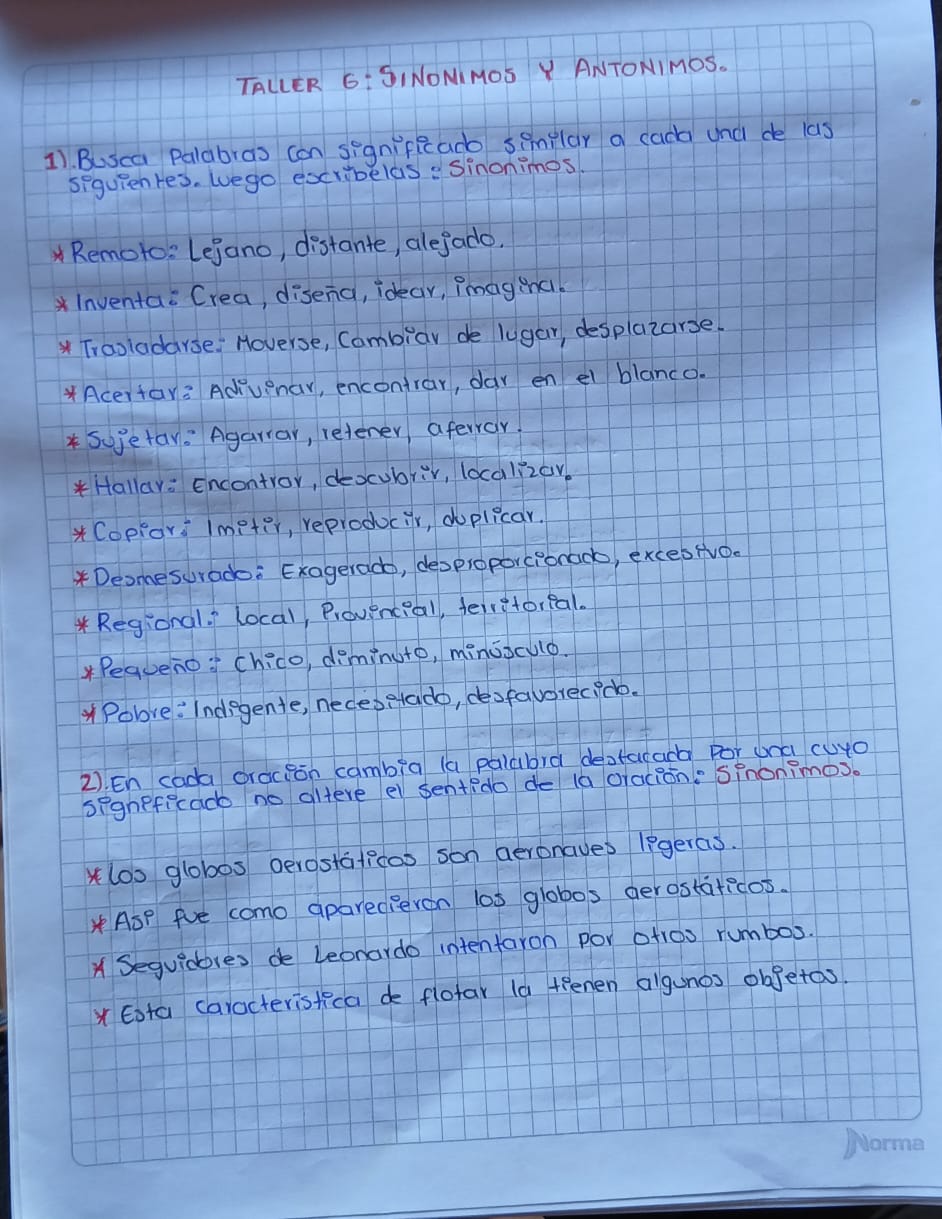 TALLER 6: SINONIMOS Y ANTONIMOS.
1). Busca Palabras con significado similar a cada una de las
siguientes. Luego escribelas: Sinonimos.
* Remoto: Lejano, distante, alejado.
* Inventa: Crea, diseña, idear, imagina.
* Trasladarse: Moverse, Cambiar de lugar, desplazarse.
* Acertar: Adivinar, encontrar, dar en el blanco.
* Sujetar: Agarrar, retener, aferrar.
* Hallar: Encontrar, descubrir, localizar.
* Copiar: Imitir, reproducir, duplicar.
* Desmesurado: Exagerado, desproporcionado, excesivo.
* Regional: Local, Provincial, territorial.
* Pequeño: Chico, diminuto, minúsculo.
* Pobre: Indigente, necesitado, desfavorecido.
2). En cada oración cambia la palabra destacada por una cuyo
significado no altere el sentido de la oración: Sinonimos.
* Los globos aerostáticos son aeronaves ligeras.
* Asi fue como aparecieron los globos aerostáticos.
* Seguidores de Leonardo intentaron por otros rumbos.
* Esta caracteristica de flotar la tienen algunos objetos.
Norma